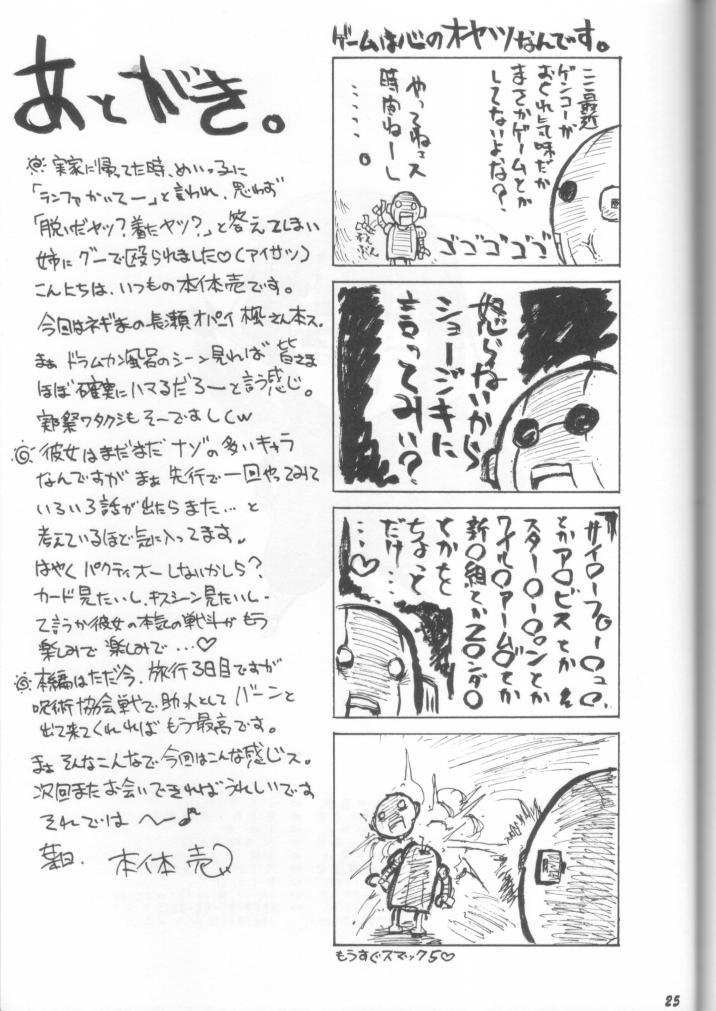 あとがき。
実家に帰ってた時、めいっ子に
「ランファかいてー」と言われ、思わず
「脱いだヤツ?着たヤツ?」と答えてしまい
姉にグーで殴られました♡(アイサツ)
こんにちは、いつもの本体売です。
今回はネギまの長瀬オパイ楓さん本ス。
まぁドラムカン風呂のシーン見れば皆さま
ほぼ確実にハマるだろーと言う感じ。
実際ワタクシもそーですしくw
彼女はまだまだナゾの多いキャラ
なんですがまぁ先行で一回やってみて
いろいろ話が出たらまた…と
考えているほど気に入ってます。
はやくパクティオーしないかしら?
カード見たいし、キスシーン見たいし-
て言うか彼女の本気の戦斗がもう
楽しみで楽しみで…♡
本編はただ今、旅行3日目ですが
呪術協会戦で助っ人としてバーンと
出て来てくれればもう最高です。
まぁそんなこんなで今回はこんな感じス。
次回またお会いできればうれしいです
それでは〜♪
本体売
ゲームは心のオヤツなんです。
ここ最近
ゲンコーが
おくれ気味だか
まさかゲームとか
してないよな?
やってねェス
時間ねーし
……。
ゴゴゴゴゴ
怒らないから
ショージキに
言ってみい?
サイ○ーフ○ー○ュ○、
とかア○ビスとか
スター○ー○ンとか
ワイル○アーム○とか
新○組とかZ○ンダ○
とかをと
ちょっと
だけ…
…♡
もうすぐスマック5♡
25